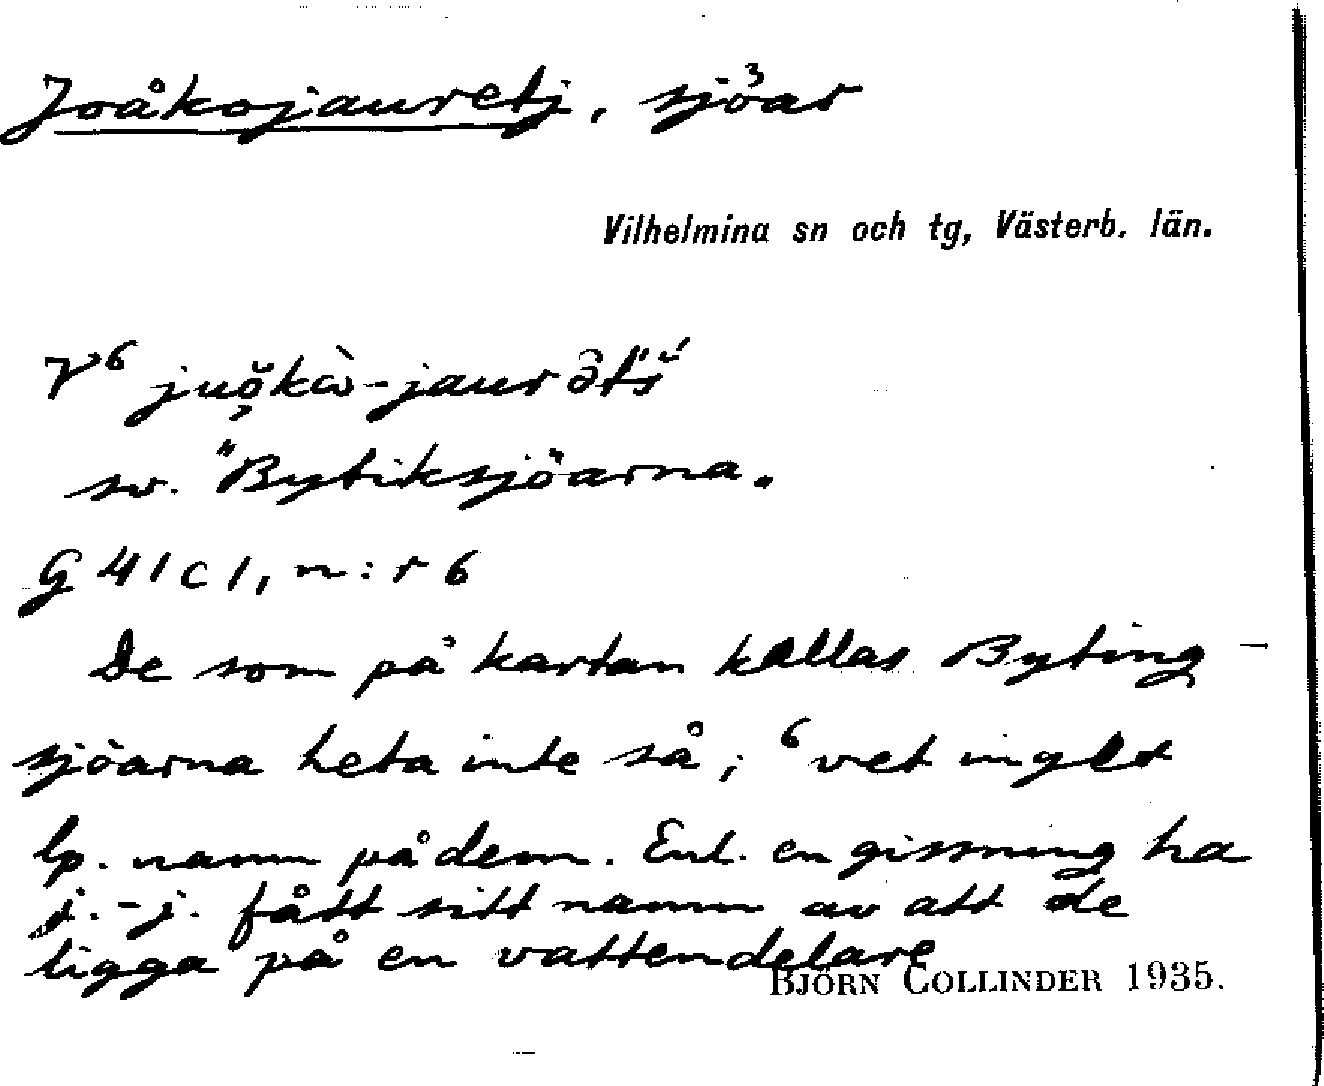 Joåkojauretj, sjöar
Vilhelmina sn och tg, Västerb. län.
V⁶ juǫ̆kὼ-jaurəts
sv. "Bytiksjöarna„
G 41 c 1, n:r 6
De som på kartan kallas Byting-
sjöarna heta inte så; ⁶vet inget
lp. namn på dem. Enl. en gissning ha
j.-j. fått sitt namn av att de
ligga på en vattendelare
BJÖRN COLLINDER 1935.